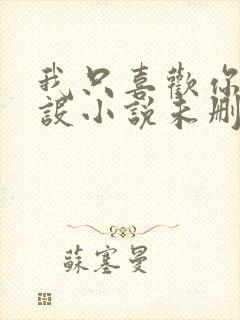 我只喜歡你
設小說未刪
蘇塞曼